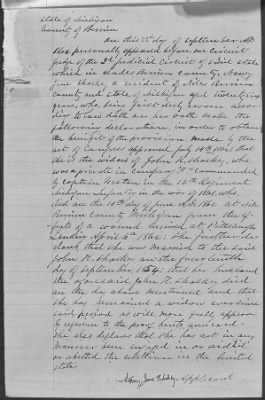 State of Michigan
County of Berrien
On this 1st day of September AD
1862 personally appeared before me Circuit
Judge of the 2nd Judicial Circuit of said State
which includes Berrien County, Nancy
Jane a resident of Niles Berrien
County and State of Michigan aged twenty six
years, who, being first duly sworn accor
ding to law doth on her oath make the
following declaration, in order to obtain
the benefits of the provision made by the
act of Congress approved July 14th 1862: that
she is the widow of John R. Shockey, who
was a private in Company "F" commanded
by Captain in the 12th Regiment
Michigan Infantry in the war of 1861, who
died on the 10th day of June AD 1862 at
Berrien County Michigan from the ef-
fects of a wound received at Pittsburgh
Landing April 6th 1862. She further de-
clares that she was married to the said
John R. Shockey on the fourteenth
day of September 1854; that her husband
the aforesaid John R. Shockey died
on the day above mentioned and that
she has remained a widow ever since
said period as will more fully appear
by reference to the proof hereto annexed.
She also declares that she has not in any
manner been engaged in or aided
or abetted the rebellion in the United
States
Nancy Jane Applicant